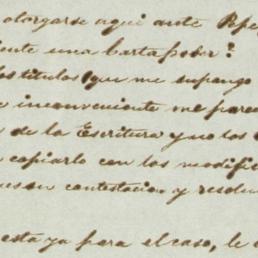 otorgarse aqui ante Pepe
ente una Carta poder?
los titulos que me supongo
inconveniente me pare
de la Escritura y no los
copiarlo con las modifi
contestacion y resolu
esta ya para el caso, le